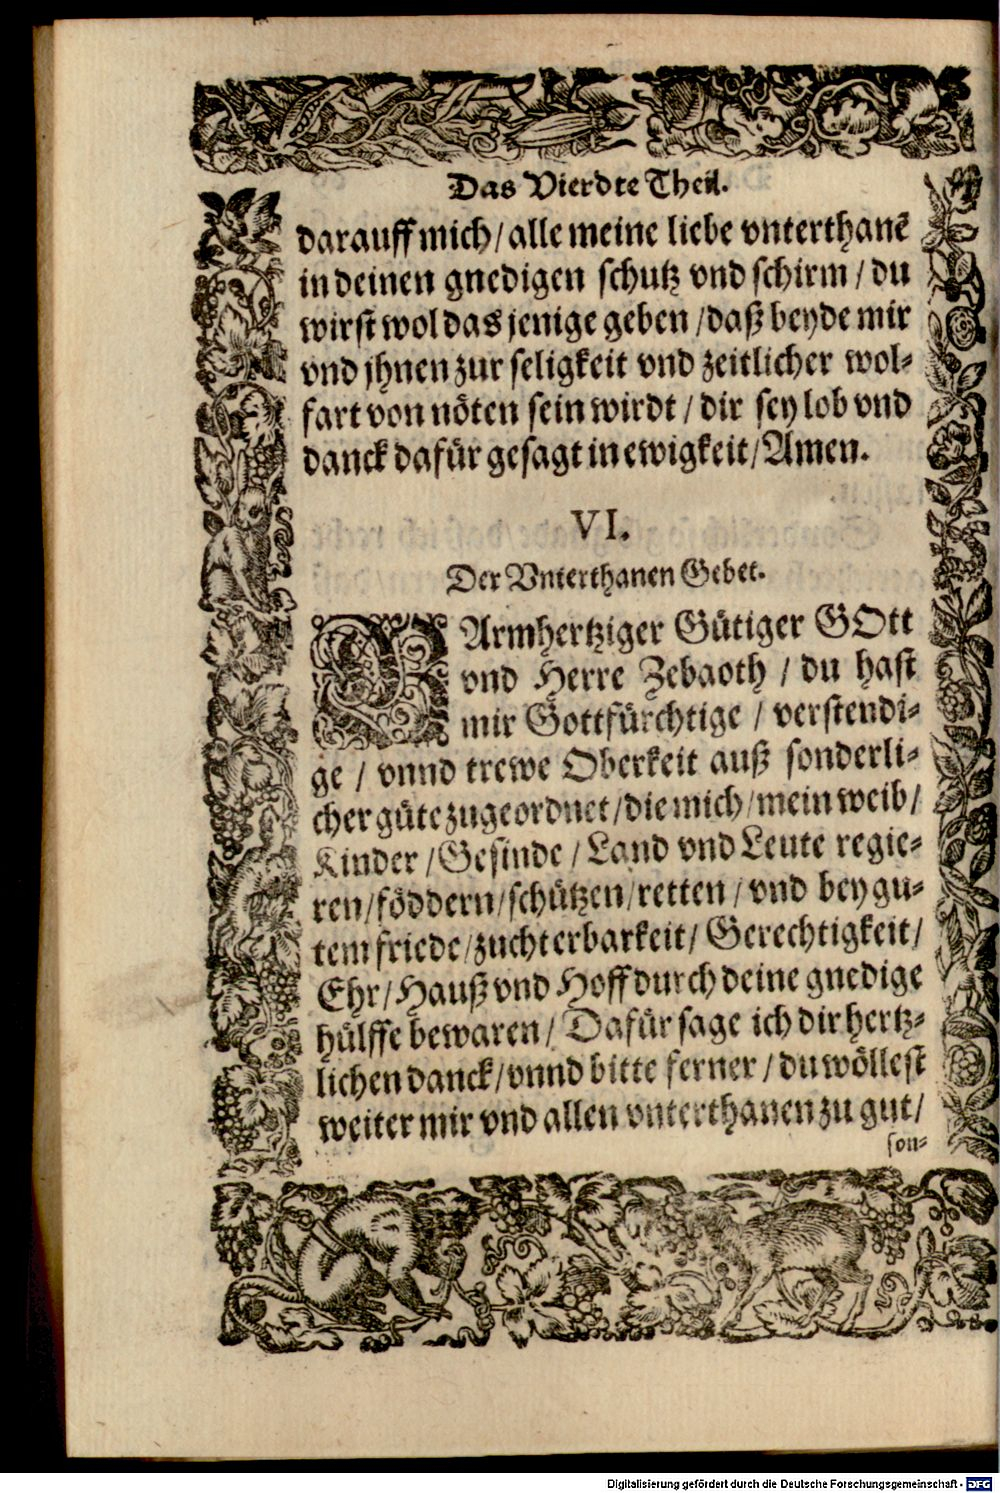 Das Vierdte Theil.
darauff mich/ alle meine liebe vnterthanẽ
in deinen gnedigen schutz vnd schirm / du
wirst wol das jenige geben /daß beyde mir
vnd jhnen zur seligkeit vnd zeitlicher wol-
fart von nöten sein wirdt / dir sey lob vnd
danck dafür gesagt in ewigkeit/ Amen.
VI.
Der Vnterthanen Gebet.
BArmhertziger Gütiger GOtt
vnd Herre Zebaoth / du hast
mir Gottfürchtige / verstendi-
ge / vnnd trewe Oberkeit auß sonderli-
cher güte zugeordnet/die mich/mein weib/
Kinder /Gesinde / Land vnd Leute regie-
ren/föddern/schützen/retten / vnd bey gu-
tem friede/zucht erbarkeit/ Gerechtigkeit/
Ehr/ Hauß vnd Hoff durch deine gnedige
hülffe bewaren/ Dafür sage ich dir hertz-
lichen danck/vnnd bitte ferner / du wöllest
weiter mir vnd allen vnterthanen zu gut/
son-
Digitalisierung gefördert durch die Deutsche Forschungsgemeinschaft - DFG